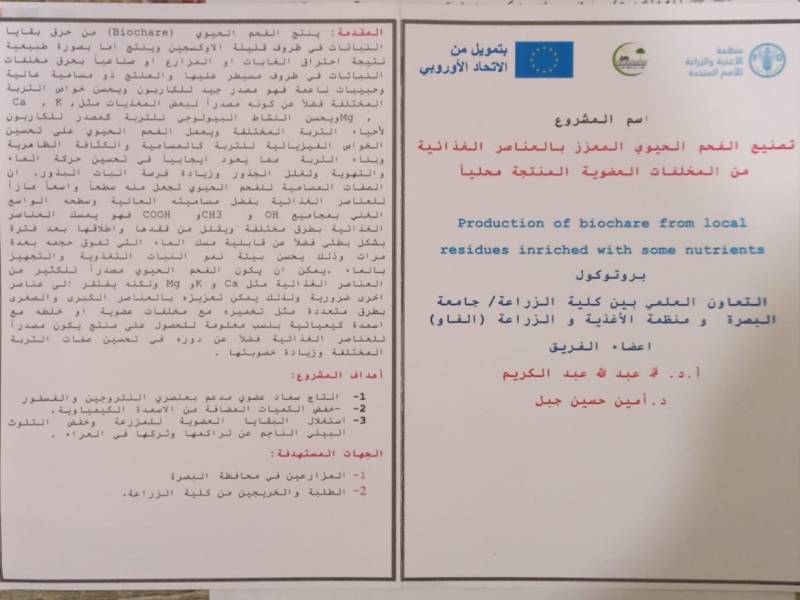 منظمة
الأغذية والزراعة
للأمم المتحدة
بتمويل من
الاتحاد الأوروبي
اسم المشروع
تصنيع الفحم الحيوي المعزز بالعناصر الغذائية
من المخلفات العضوية المنتجة محلياً
Production of biochare from local
residues inriched with some nutrients
بروتوكول
التعاون العلمي بين كلية الزراعة/ جامعة
البصرة و منظمة الأغذية و الزراعة (الفاو)
اعضاء الفريق
أ.د. محمد عبد الله عبد الكريم
د.أمين حسين جبل
المقدمة: ينتج الفحم الحيوي (Biochare) من حرق بقايا
النباتات في ظروف قليلة الاوكسجين وينتج اما بصورة طبيعية
نتيجة احتراق الغابات او المزارع او صناعياً بحرق مخلفات
النباتات في ظروف مسيطر عليها والمنتج ذو مسامية عالية
وحبيبات ناعمة فهو مصدر جيد للكاربون ويحسن خواص التربة
المختلفة فضلاً عن كونه مصدراً لبعض المغذيات مثل Ca , K ,
, Mg ويحسن النشاط البيولوجي للتربة كمصدر للكاربون
لأحياء التربة المختلفة ويعمل الفحم الحيوي على تحسين
الخواص الفيزيائية للتربة كالمسامية والكثافة الظاهرية
وبناء التربة مما يعود ايجابياً في تحسين حركة الماء
والتهوية وتغلغل الجذور وزيادة فرصة انبات البذور. ان
الصفات المسامية للفحم الحيوي تجعل منه سطحاً واسعاً مازاً
للعناصر الغذائية بفضل مساميته العالية وسطحه الواسع
الغني بمجاميع OH و CH3 و COOH فهو يمسك العناصر
الغذائية بطرق مختلفة ويقلل من فقدها واطلاقها بعد فترة
بشكل بطئي فضلاً عن قابلية مسك الماء التي تفوق حجمه بعدة
مرات وذلك يحسن بيئة نمو النبات التغذوية والتجهيز
بالماء .يمكن ان يكون الفحم الحيوي مصدراً للكثير من
العناصر الغذائية مثل Ca و K و Mg ولكنه يفتقر الى عناصر
اخرى ضرورية ولذلك يمكن تعزيزه بالعناصر الكبرى والصغرى
بطرق متعددة مثل تخميره مع مخلفات عضوية او خلطه مع
اسمدة كيميائية بنسب معلومة للحصول على منتج يكون مصدراً
للعناصر الغذائية فضلاً عن دوره في تحسين صفات التربة
المختلفة وزيادة خصوبتها .
أهداف المشروع:
1- انتاج سماد عضوي مدعم بعنصري النتروجين والفسفور
2- -خفض الكميات المضافة من الاسمدة الكيمياوية.
3- استغلال البقايا العضوية للمزرعة وخفض التلوث
البيئي الناجم عن تراكمها وتركها في العراء .
الجهات المستهدفة:
1- المزارعين في محافظة البصرة
2- الطلبة والخريجين من كلية الزراعة.